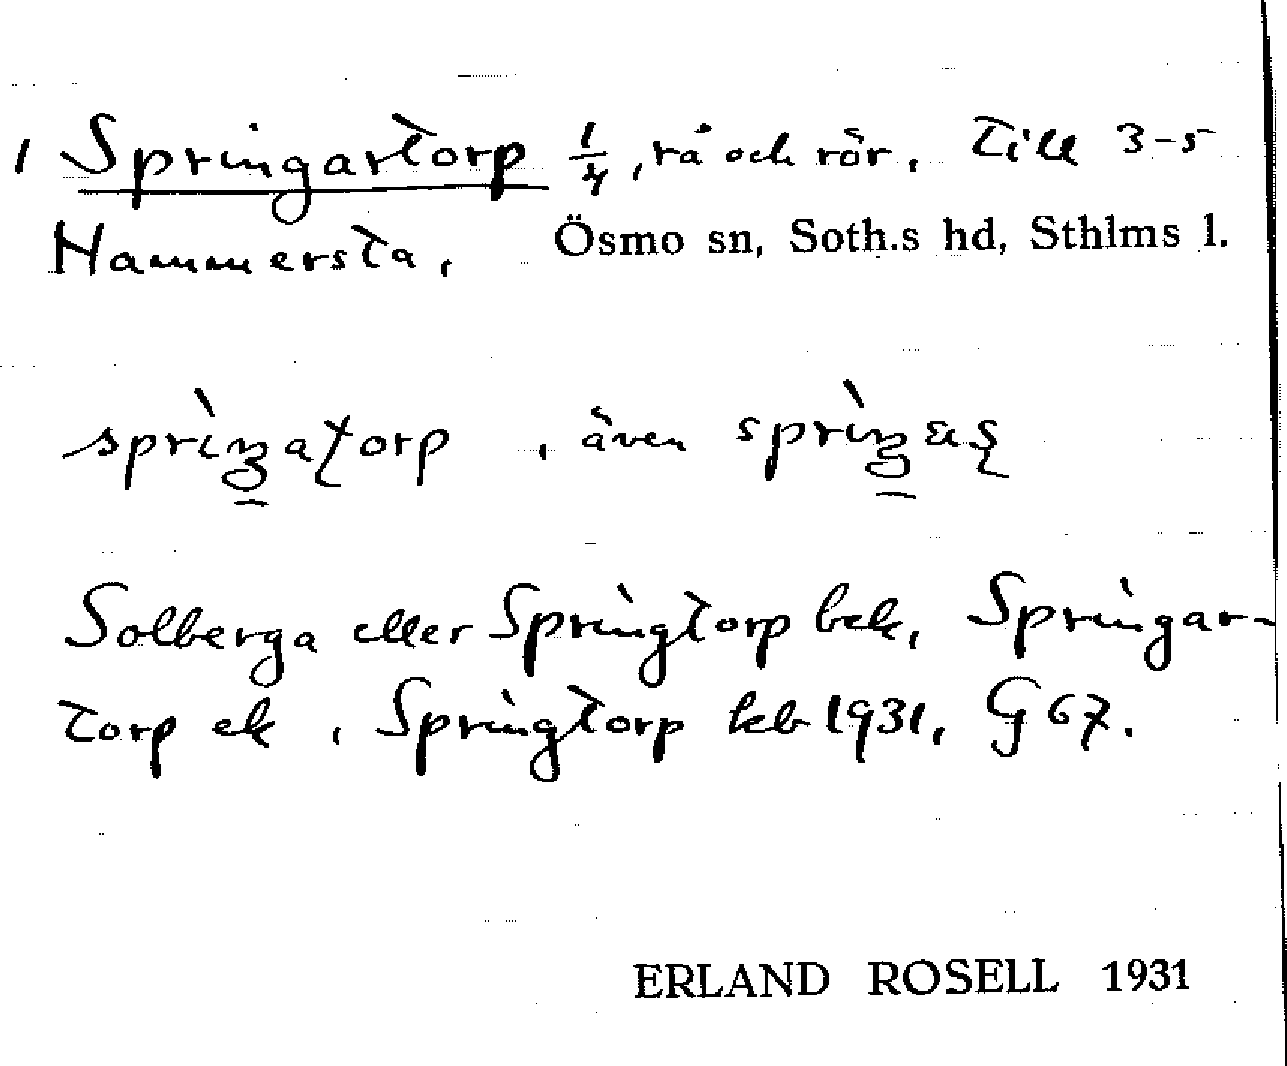 1 Springartorp 1/4, rå och rör. Till 3-5
Hammersta. Ösmo sn, Soth.s hd, Sthlms l.
, även
Solberga eller Springtorp bek, Springar-
torp ek, Springtorp kb 1931, G 67.
ERLAND ROSELL 1931